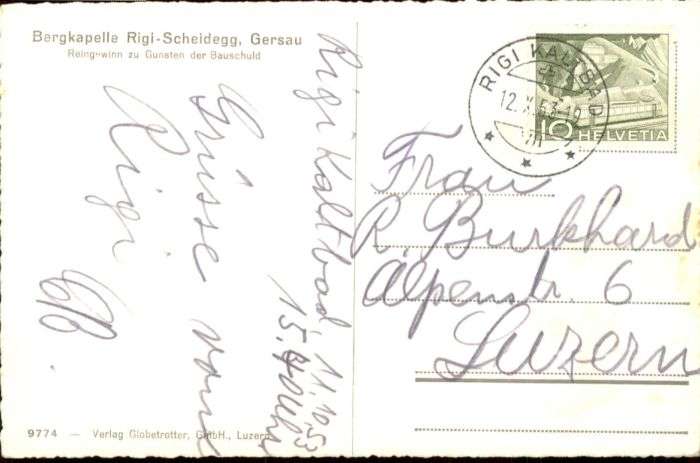 Bergkapelle Rigi-Scheidegg, Gersau
Reingewinn zu Gunsten der Bauschuld
Rigi Kaltbad 11.10.53
15.40 Uhr
Grüsse vom
Rigi
RIGI KALTBAD
12.X.53-19
10 HELVETIA
Frau
R. Burkhard
Alpenstr. 6
Luzern
9774 — Verlag Globetrotter, GmbH., Luzern